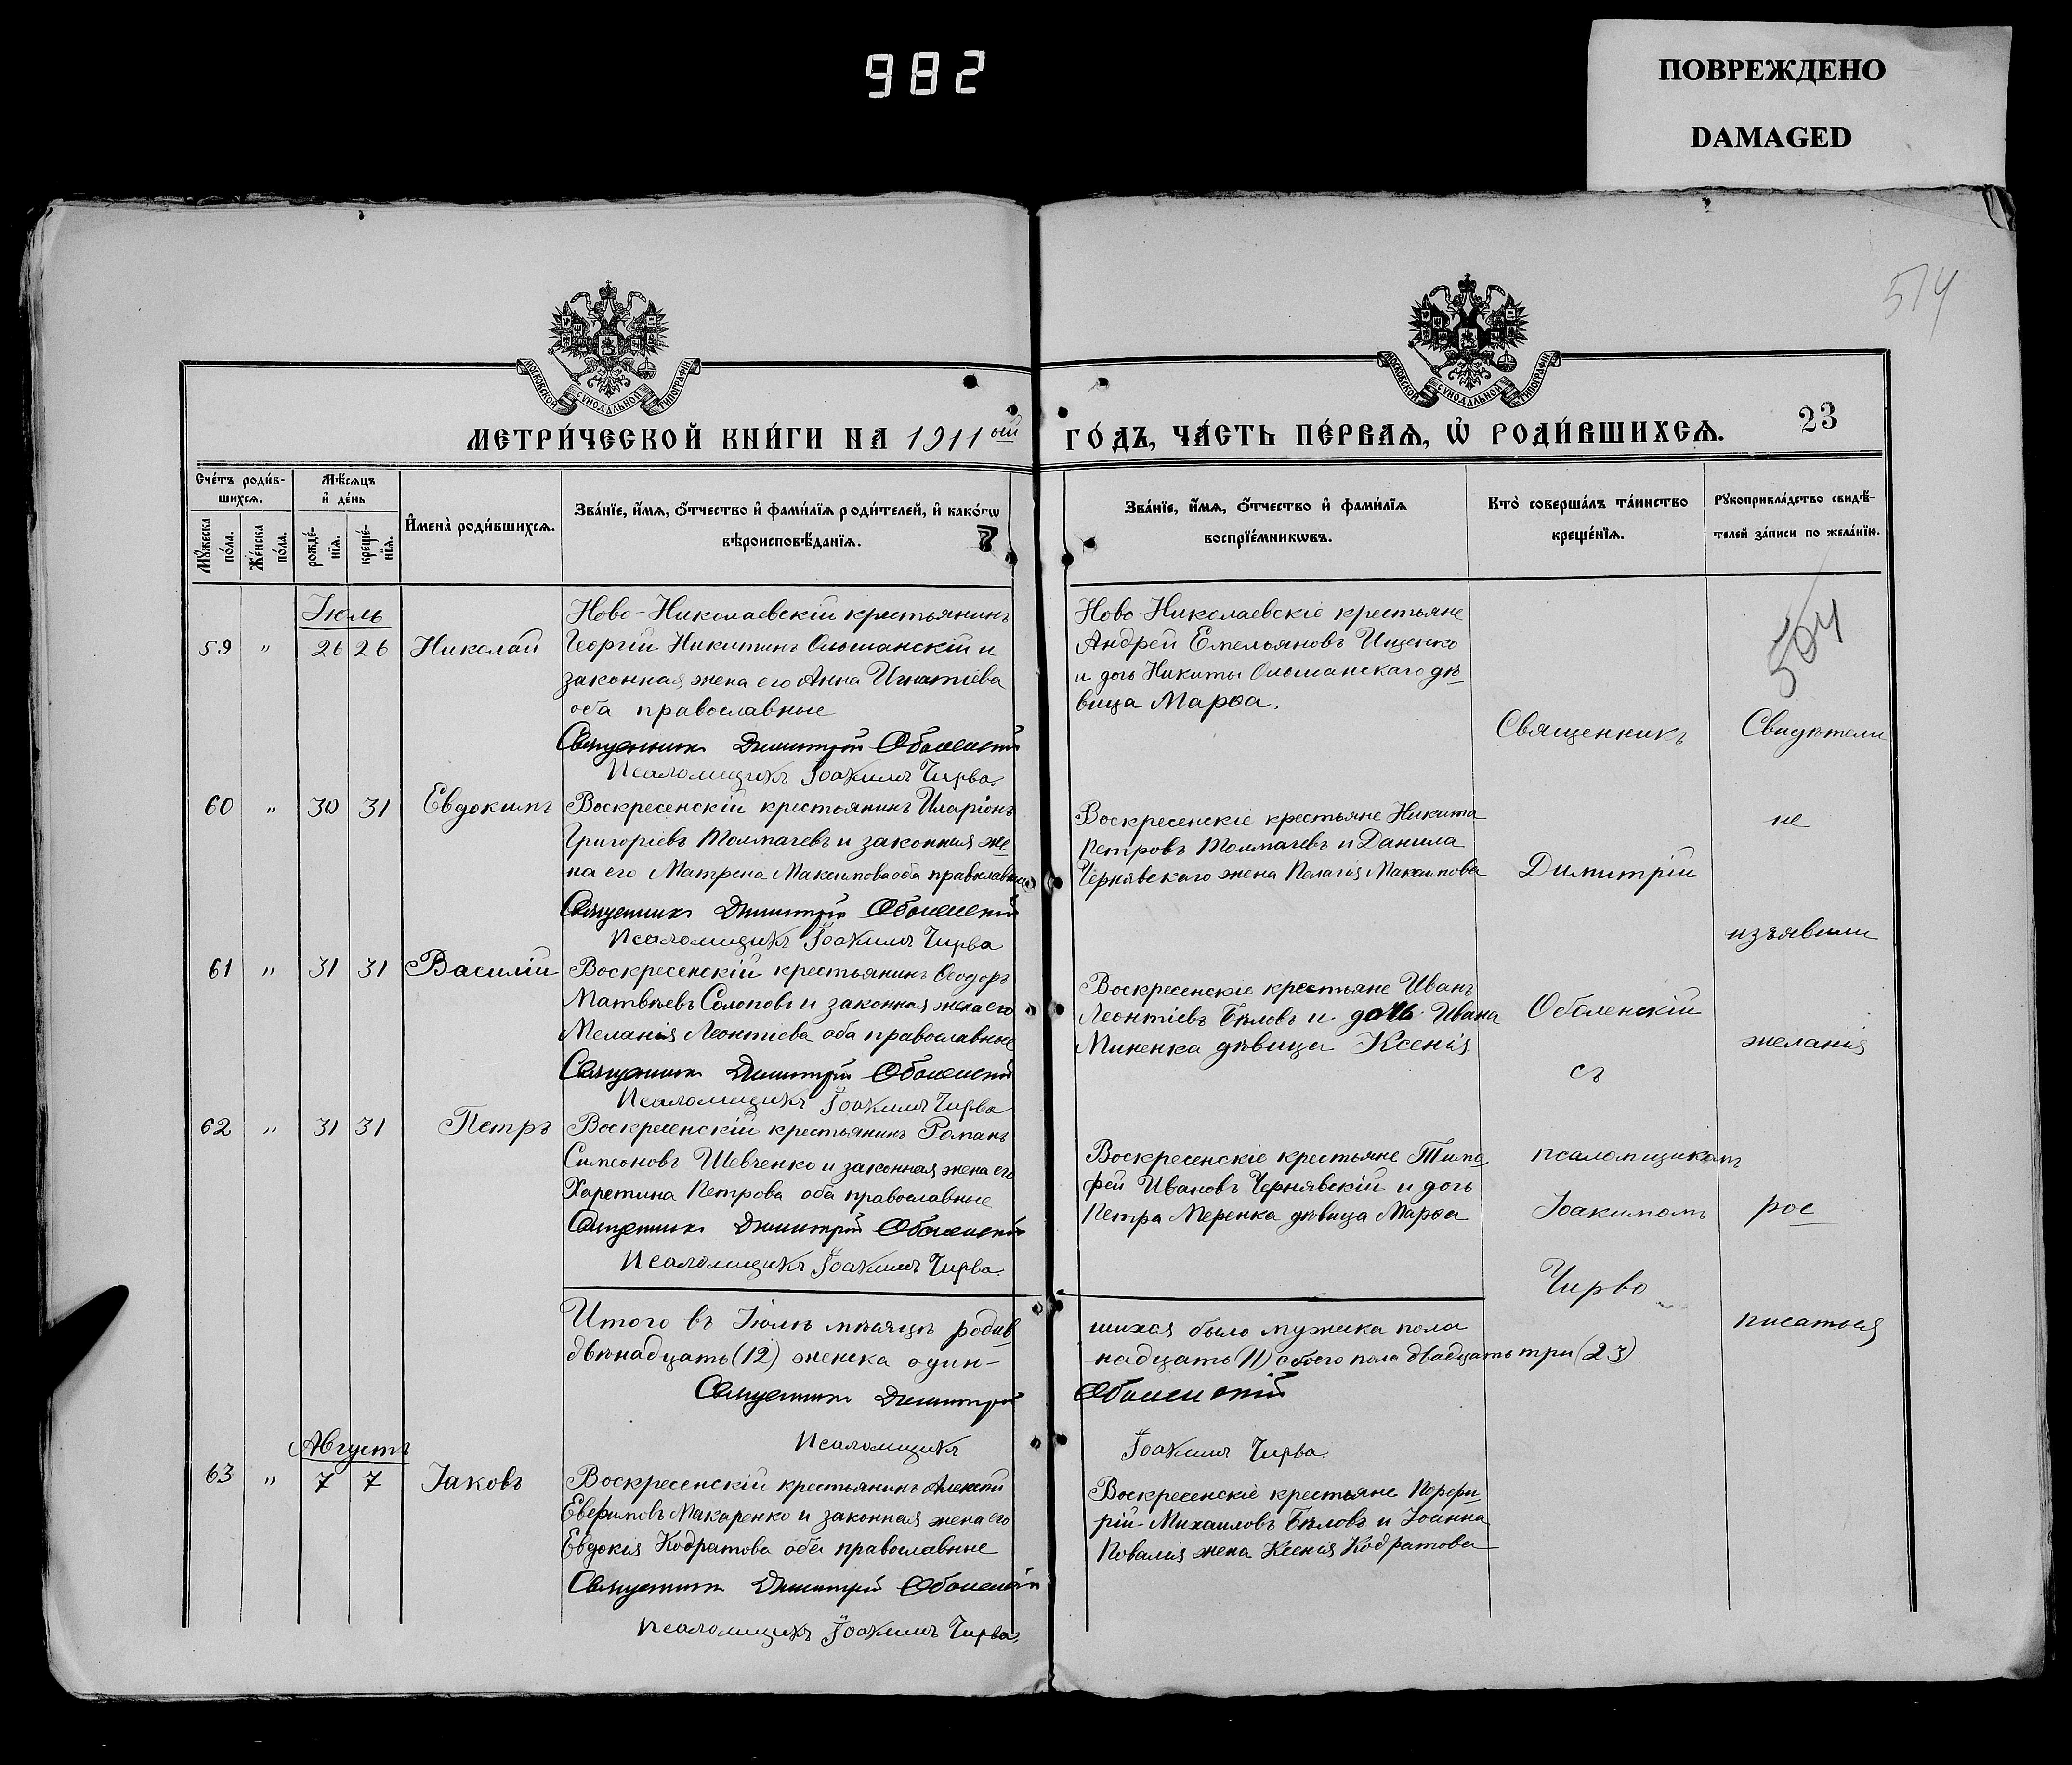 982
ПОВРЕЖДЕНО
DAMAGED
514
МОСКОВСКОЙ СѴНОДАЛЬНОЙ ТИПОГРАФІИ
МОСКОВСКОЙ СѴНОДАЛЬНОЙ ТИПОГРАФІИ
МЕТРИ́ЧЕСКОЙ КНИ́ГИ НА 1911ый ГО́ДЪ, ЧА́СТЬ ПЕ́РВАѦ, Ѡ҆ РОДИ́ВШИХСѦ. 23
Сче́тъ роди́в-
шихсѧ.
Мꙋ́жеска по́ла.
Же́нска по́ла.
Мѣ́сяцъ
и҆ де́нь
рожде́-
нїѧ.
креще́-
нїѧ.
И҆мена̀ роди́вшихсѧ.
Зва́нїе, и҆́мѧ, ѻ҆́тчество и҆ фами́лїѧ роди́телей, и҆ како́гѡ
вѣроисповѣ́данїѧ.
Зва́нїе, и҆́мѧ, ѻ҆́тчество и҆ фами́лїѧ
воспрїе́мникѡвъ.
Кто̀ соверша́лъ та́инство
креще́нїѧ.
Рꙋкоприкла́дство свидѣ́-
телей за́писи по жела́нїю.
Іюль
59 " 26 26 Николай
Ново-Николаевскій крестьянинъ
Георгій Никитинъ Ольшанскій и
законная жена его Анна Игнатіева
оба православные
Священникъ Димитрій Оболенскій
Псаломщикъ Іоакимъ Чирва
Ново-Николаевскіе крестьяне
Андрей Емельяновъ Ищенко
и дочь Никиты Ольшанскаго дѣ-
вица Марѳа.
504
60 " 30 31 Евдокимъ
Воскресенскій крестьянинъ Иларіонъ
Григоріевъ Толмачевъ и законная же-
на его Матрена Максимова оба православные
Священникъ Димитрій Оболенскій
Псаломщикъ Іоакимъ Чирва
Воскресенскіе крестьяне Никита
Петровъ Толмачевъ и Данила
Чернявскаго жена Пелагія Максимова
61 " 31 31 Василій
Воскресенскій крестьянинъ Ѳеодоръ
Матвѣевъ Солоповъ и законная жена его
Меланія Леонтіева оба православные
Священникъ Димитрій Оболенскій
Псаломщикъ Іоакимъ Чирва
Воскресенскіе крестьяне Иванъ
Леонтіевъ Бѣловъ и дочь Ивана
Миненка дѣвица Ксенія
62 " 31 31 Петръ
Воскресенскій крестьянинъ Романъ
Симеоновъ Шевченко и законная жена его
Харетина Петрова оба православные
Священникъ Димитрій Оболенскій
Псаломщикъ Іоакимъ Чирва
Воскресенскіе крестьяне Тимо-
фей Ивановъ Чернявскій и дочь
Петра Меренка дѣвица Марѳа
Итого въ Іюлѣ мѣсяцѣ родив
шихся было мужска пола
двѣнадцать (12) женска один-
надцать (11) обоего пола двадцать три (23)
Священникъ Димитрій Оболенскій
Псаломщикъ Іоакимъ Чирва
Августъ
63 " 7 7 Іаковъ
Воскресенскій крестьянинъ Алексѣй
Евфимовъ Макаренко и законная жена его
Евдокія Кодратова оба православные
Священникъ Димитрій Оболенскій
Псаломщикъ Іоакимъ Чирва
Воскресенскіе крестьяне Порфи-
рій Михаиловъ Бѣловъ и Іоанна
Коваля жена Ксенія Кодратова
Священникъ
Димитрій
Оболенскій
съ
псаломщикомъ
Іоакимомъ
Чирво
Свидѣтели
не
изъявили
желанія
рос
писаться